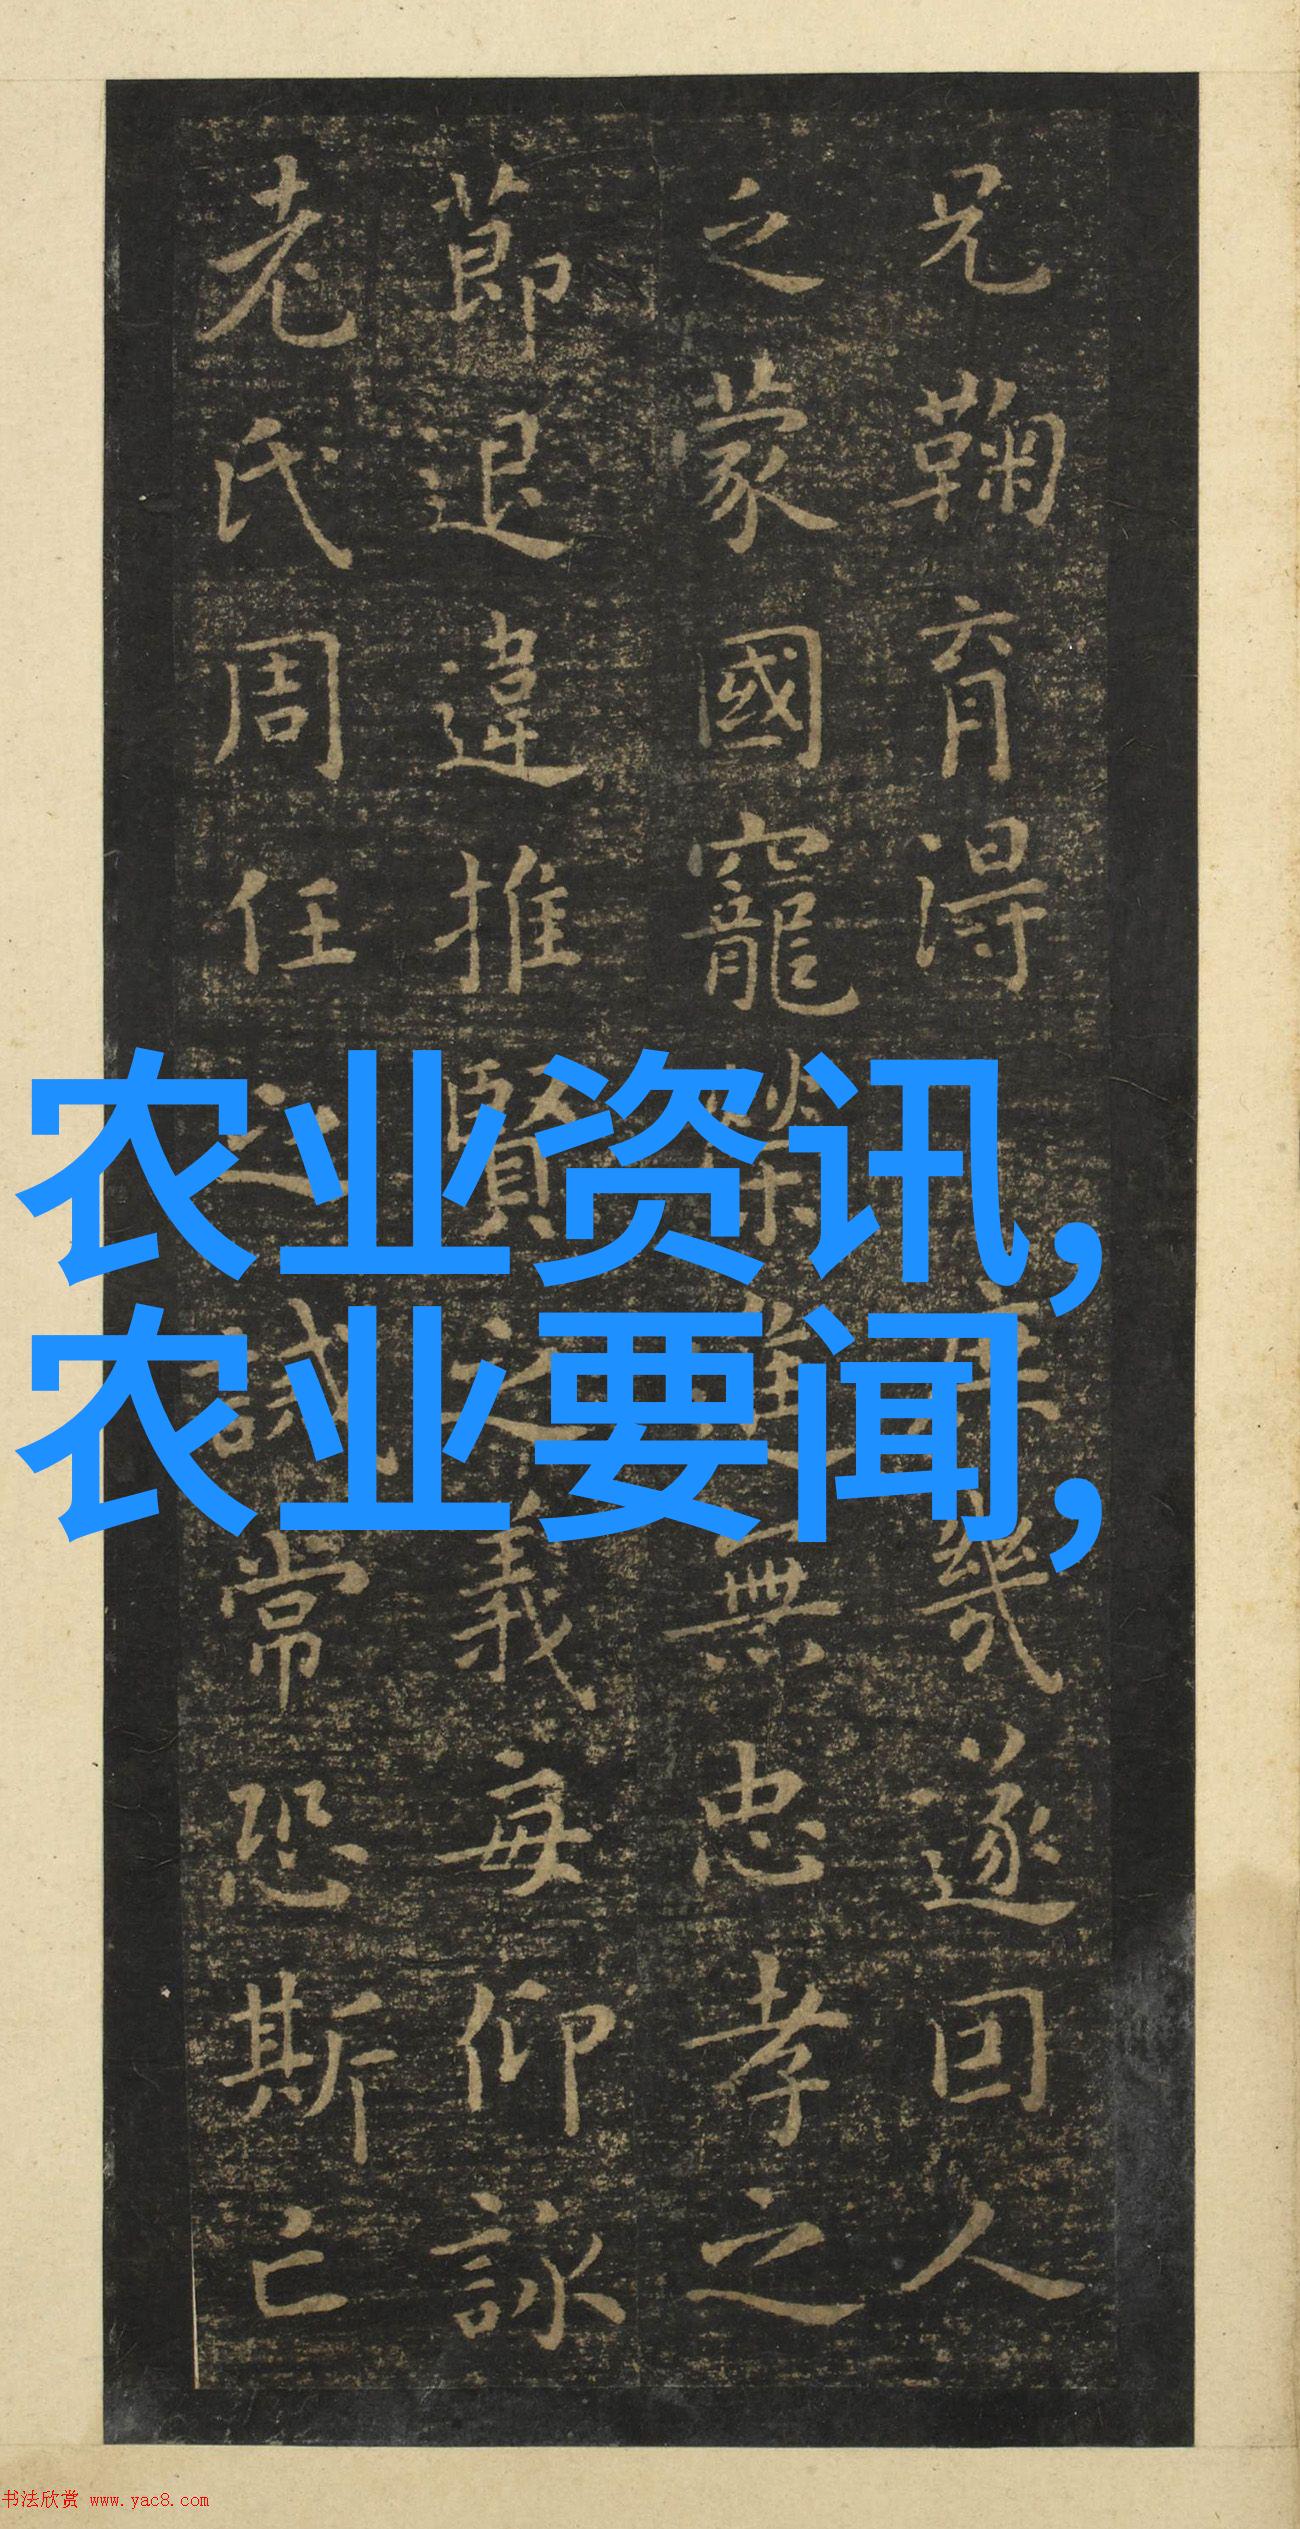 兄鞠育得庶幾遂因人
乏蒙國寵榮進無忠孝之
節退違推賢之義每仰詠
老氏周任之誡常恐斯亡
农业资讯,
农业要闻,
书法欣赏 www.yac8.com